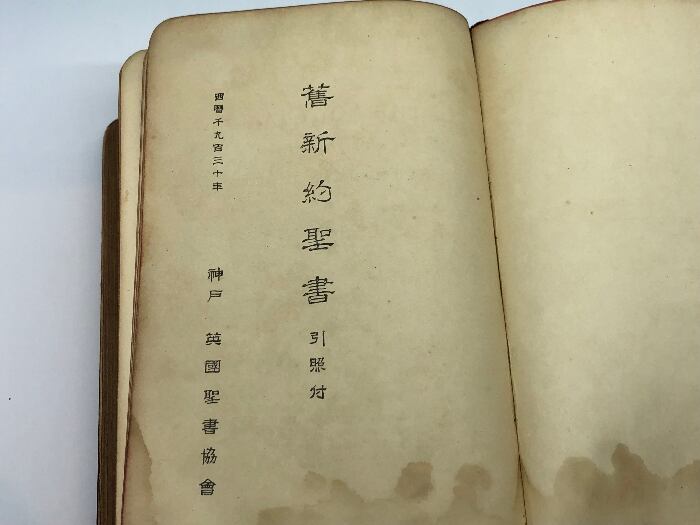 舊新約聖書 引照付
西曆千九百三十年
神戶 英國聖書協會